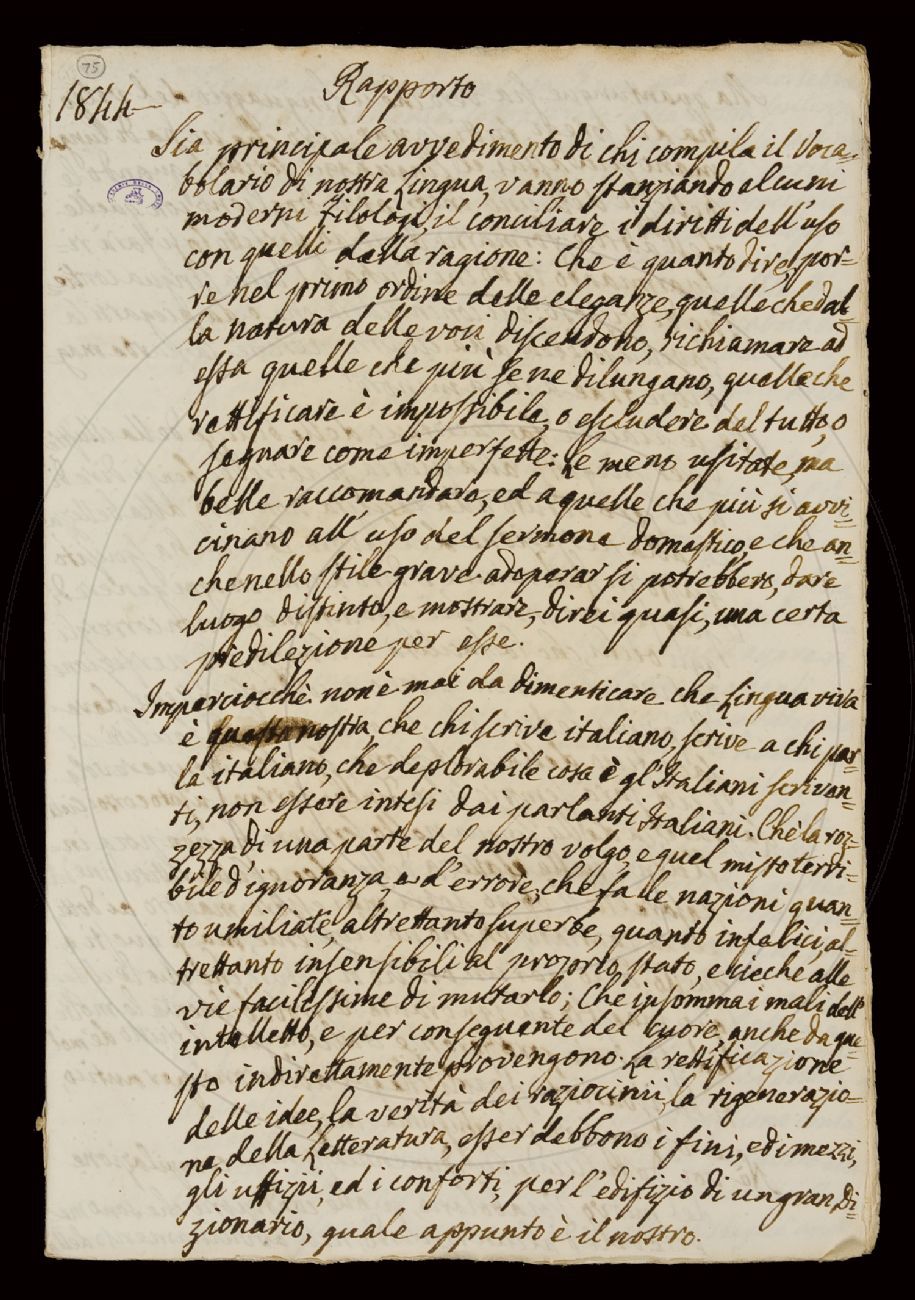 75
1844
Rapporto
Sia principale avvedimento di chi compila il Voca=
bolario di nostra Lingua, vanno stanziando alcuni
moderni filologi, il conciliare i diritti dell'uso
con quelli della ragione: Che è quanto dire, por=
re nel primo ordine delle eleganze, quelle che dal=
la natura delle voci discendono, richiamare ad
essa quelle che più se ne dilungano, quelle che
rettificare è impossibile, o escludere del tutto, o
segnare come imperfette: Le meno usitate, ma
belle raccomandare, ed a quelle che più si avvi=
cinano all'uso del sermone domestico, e che an=
che nello stile grave adoperar si potrebbero, dare
luogo distinto, e mostrare, direi quasi, una certa
predilezione per esse.
Imperciocchè non è mai da dimenticare che Lingua viva
è questa nostra, che chi scrive italiano, scrive a chi par=
la italiano, che deplorabile cosa è gl'Italiani scriven=
ti, non essere intesi dai parlanti Italiani. Che la roz=
zezza di una parte del nostro volgo, e quel misto terri=
bile d'ignoranza, e d'errore, che fa le nazioni quan=
to umiliate, altrettanto superbe, quanto infelici, al=
trettanto insensibili al proprio stato, e cieche alle
vie facilissime di mutarlo; Che insomma i mali dell'
intelletto, e per conseguente del cuore, anche da que=
sto indirettamente provengono. La rettificazione
delle idee, la verità dei raziocinii, la rigenerazio=
ne della Letteratura, esser debbono i fini, ed i mezzi,
gli uffizii, ed i conforti, per l'edifizio di un gran Di=
zionario, quale appunto è il nostro.